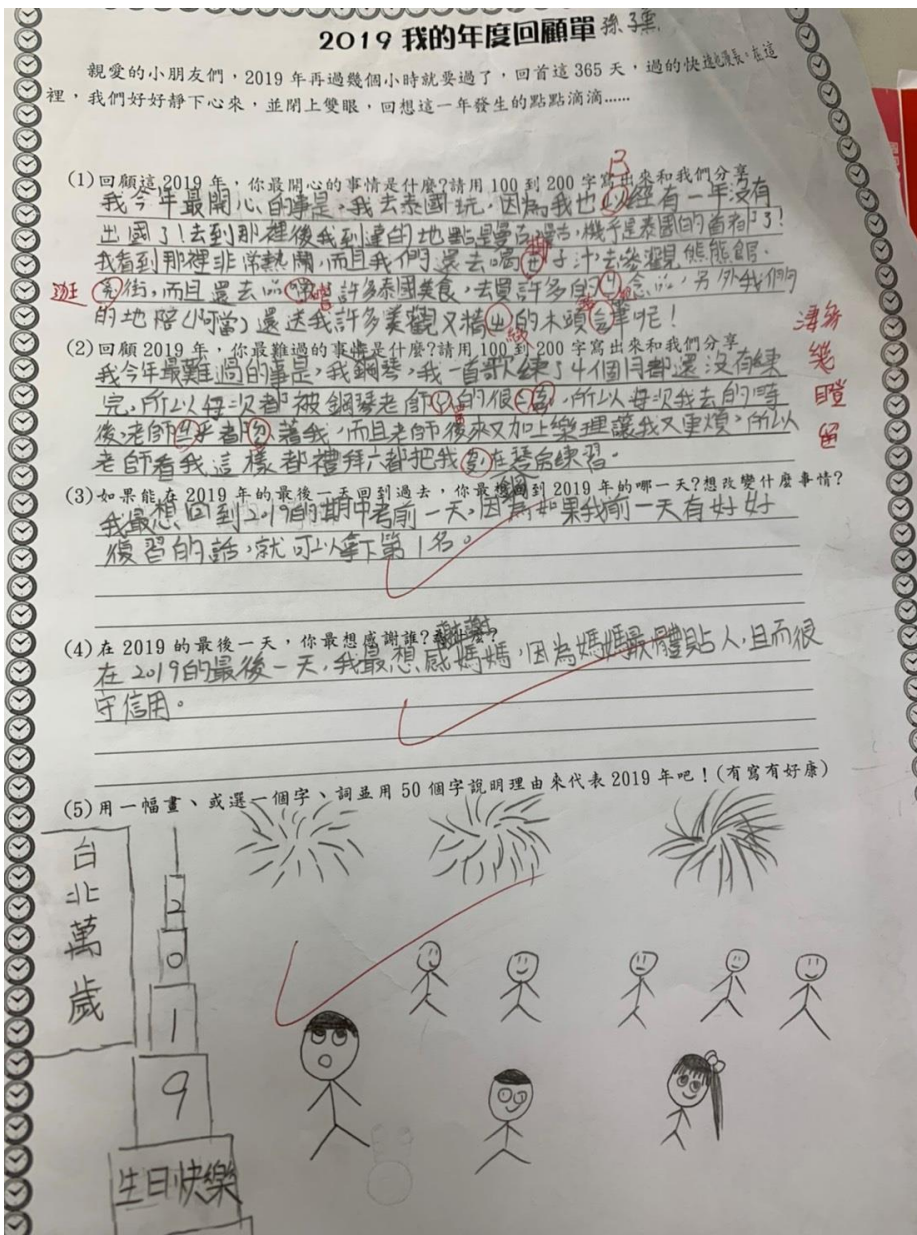 2019 我的年度回顧單 孫子
親愛的小朋友們，2019 年再過幾個小時就要過了，回首這 365 天，過的快速也漫長，在這
裡，我們好好靜下心來，並閉上雙眼，回想這一年發生的點點滴滴......
已
(1)回顧這 2019 年，你最開心的事情是什麼?請用 100 到 200 字寫出來和我們分享
我今年最開心的事是，我去泰國玩，因為我也以經有一年沒有
出國了!去到那裡後我到達的地點是曼谷，機乎是泰國的首都了!
我看到那裡非常熱鬧，而且我們還去喝 子汁去參觀熊熊館、
逛 街，而且還去品嚐許多泰國美食，去買許多的 念品，另外我們
的地陪(阿當)還送我許多美觀又精 的木頭 呢!
(2)回顧 2019 年，你最難過的事情是什麼?請用 100 到 200 字寫出來和我們分享
我今年最難過的事是，我鋼琴，我一首歌練了4個月都還沒有練
完，所以每次都被鋼琴老師 的很 ，所以每次我去的時
後，老師 乎都 著我，而且老師後來又加上樂理讓我又更煩，所以
老師看我這樣都禮拜六都把我 在琴房練習。
幾
瞪
留
(3)如果能在 2019 年的最後一天回到過去，你最想回到 2019 年的哪一天?想改變什麼事情?
我最想回到2019的期中考前一天，因為如果我前一天有好好
復習的話，就可以拿下第1名。
(4)在 2019 的最後一天，你最想感謝誰?為什麼?
在2019的最後一天，我最想感謝媽媽，因為媽媽最體貼人，且而很
守信用。
(5)用一幅畫、或選一個字、詞並用 50 個字說明理由來代表 2019 年吧！(有寫有好康)
台北萬歲
2
0
1
9
生日快樂